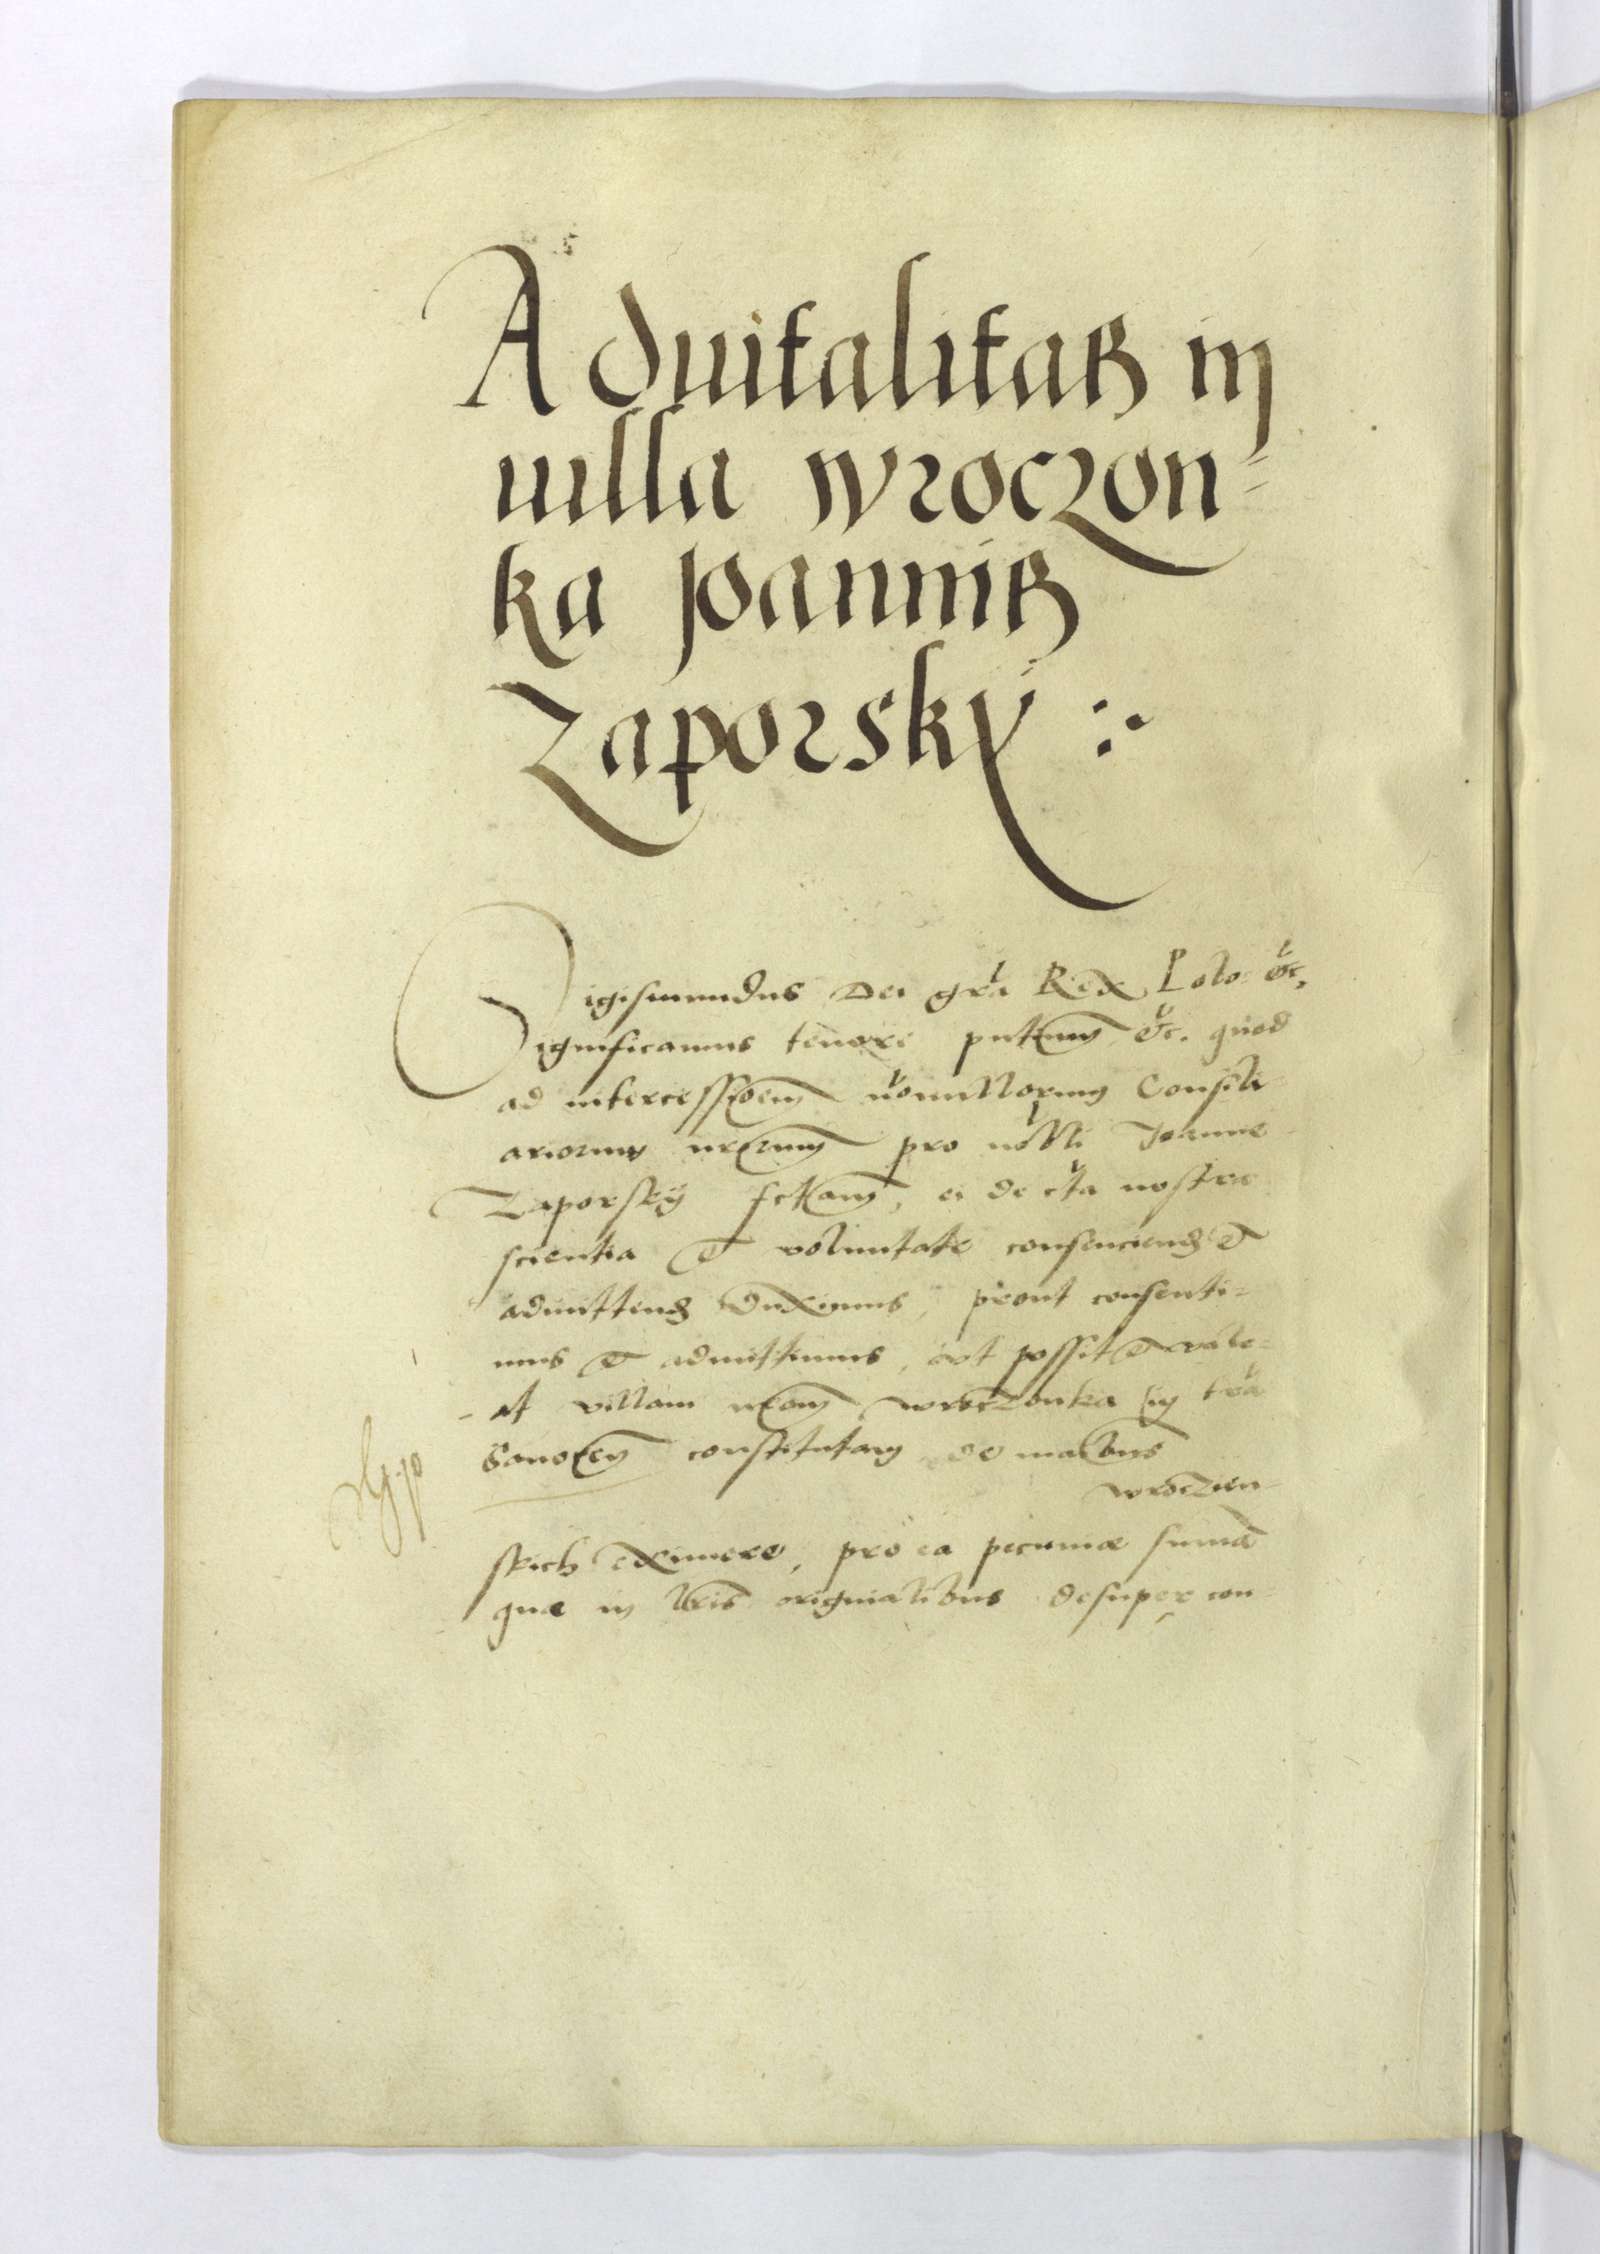 Aduitalitas in
uilla wroczon=
ka Joannis
Zaporsky
Sigismundus Dei gra Rex Polo: &c,
Significamus tenore pntium &c. quod
ad intercessioem nonnullorum Consili-
ariorum nrorum pro nobli Joanne
Zaporsky fctam, ei de cta nostra
scientia et voluntate consenciend et
admittend duximus, prout consenti=
mus et admittimus, vt possit et vale=
at villam nram wroczonka in tra
Sanocen constitutam de manibus
wroczien-
skich eximere, pro ea pecuniæ summa
quæ in lris originalibus desuper con-